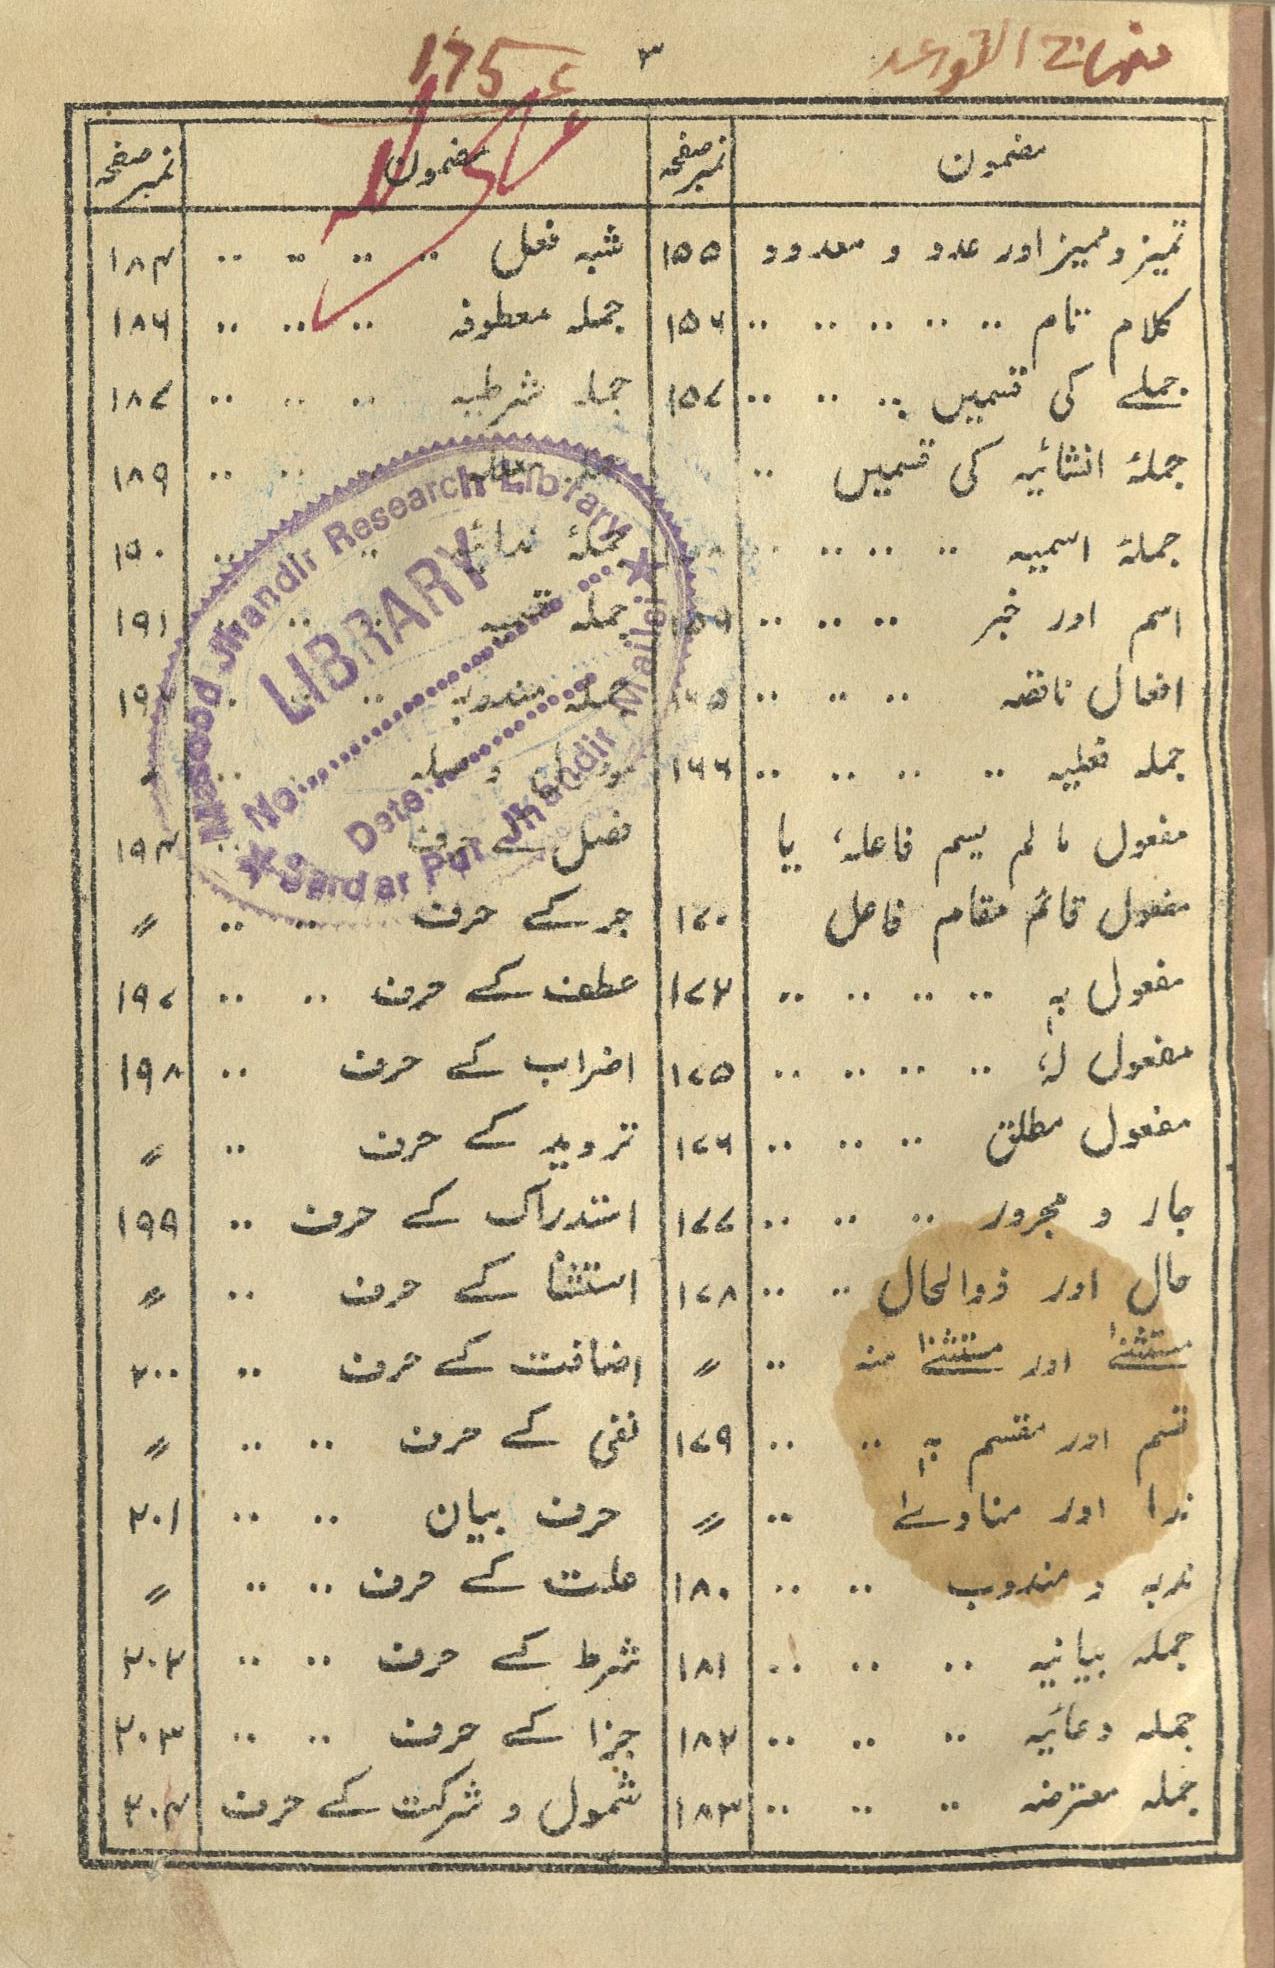 ۳
175
مضمون نمبر صفحہ مضمون نمبر صفحہ
تمیز و ممیز اور عدد و معدود ۱۵۵
کلام تام .. .. .. .. .. ۱۵۶
جملے کی قسمیں .. .. .. ۱۵۷
جملۂ انشائیہ کی قسمیں ..
جملۂ اسمیہ .. .. .. ..
اسم اور خبر .. .. ..
افعال ناقصہ .. .. ..
جملہ فعلیہ .. .. .. .. ۱۶۶
مفعول ما لم یسم فاعلہٗ یا
مفعول قائم مقام فاعل ۱۷۰
مفعول بہٖ .. .. .. .. ۱۷۲
مفعول لہٗ .. .. .. .. ۱۷۵
مفعول مطلق .. .. .. ۱۷۶
جار و مجرور .. .. .. ۱۷۷
حال اور ذوالحال .. .. ۱۷۸
مستثنےٰ اور مستثنےٰ منہ .. 〃
قسم اور مقسم بہٖ .. .. ۱۷۹
ندا اور منادےٰ .. 〃
ندبہ و مندوب .. .. ۱۸۰
جملہ بیانیہ .. .. .. ۱۸۱
جملہ دعائیہ .. .. .. ۱۸۲
جملہ معترضہ .. .. .. ۱۸۳
شبہ فعل .. .. .. .. ۱۸۴
جملہ معطوفہ .. .. .. ۱۸۶
جملہ شرطیہ .. .. .. ۱۸۷
.. .. ۱۸۹
جملۂ ندائیہ .. .. ۱۹۰
جملہ قسمیہ .. .. ۱۹۱
جملہ مندوبہ .. ..
و صلہ ..
فصل حرف ۱۹۴
جر کے حرف .. .. 〃
عطف کے حرف .. .. ۱۹۷
اضراب کے حرف .. ۱۹۸
تردید کے حرف .. 〃
استدراک کے حرف .. ۱۹۹
استثنا کے حرف .. 〃
اضافت کے حرف .. ۲۰۰
نفی کے حرف .. .. 〃
حرف بیان .. .. ۲۰۱
علت کے حرف .. .. 〃
شرط کے حرف .. .. ۲۰۲
جزا کے حرف .. .. ۲۰۳
شمول و شرکت کے حرف ۲۰۴
Masood Jhandir Research Library
LIBRARY
No.
Date
Sardar Pur Jhandir Mailsi